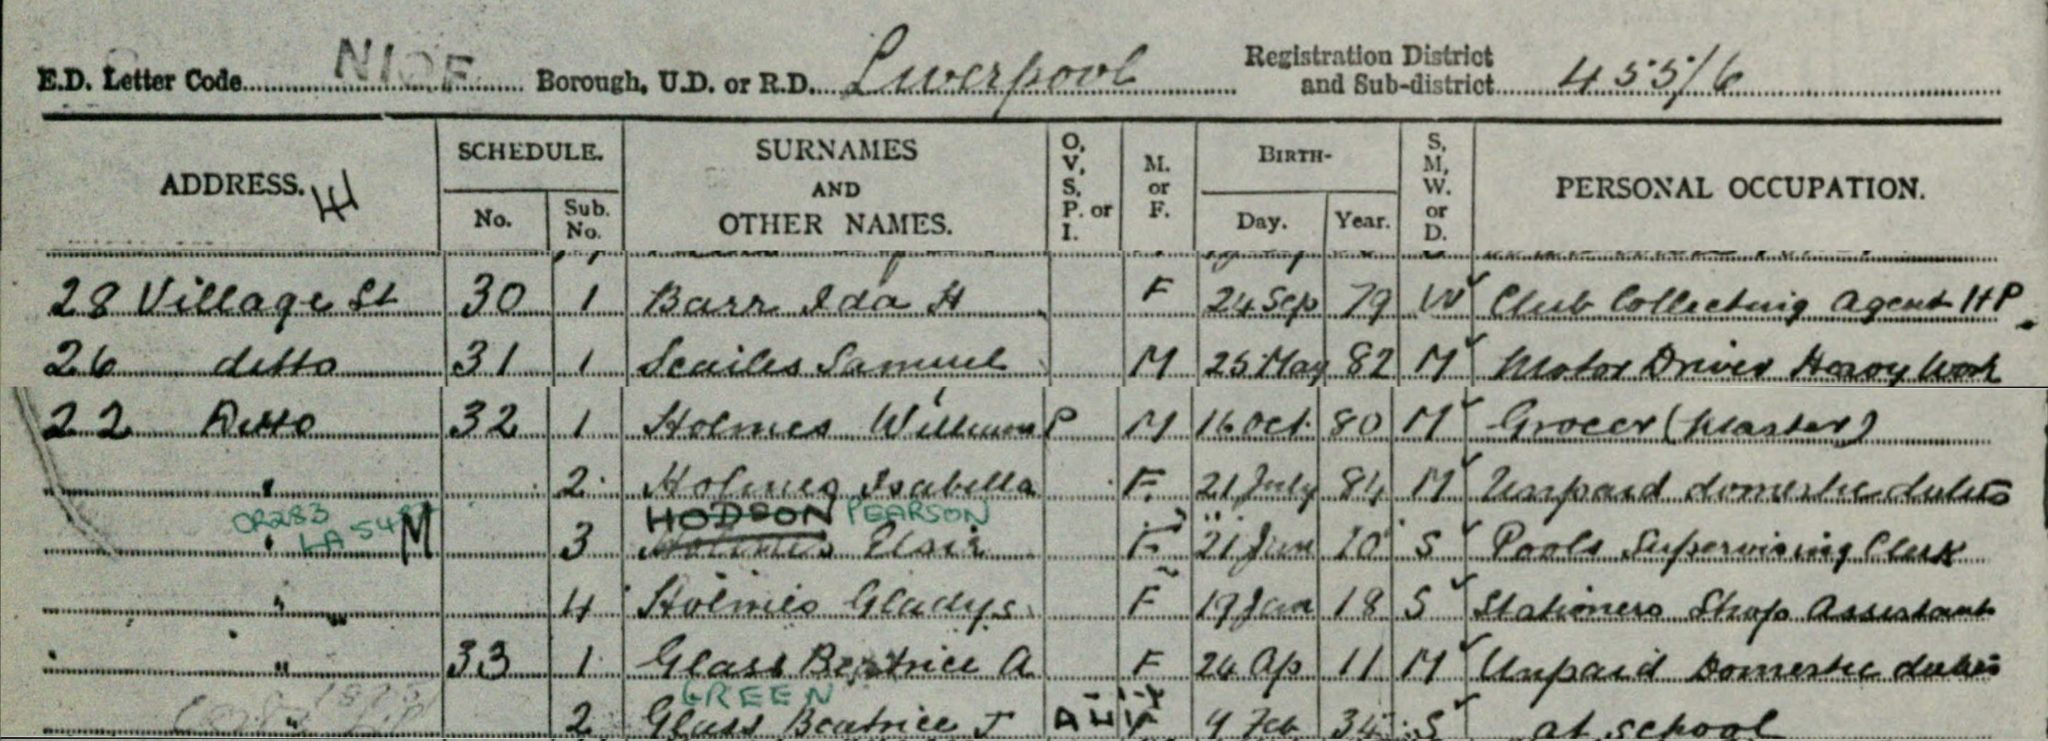 E.D. Letter Code NIOE Borough, U.D. or R.D. Liverpool Registration District and Sub-district 455/6
ADDRESS. SCHEDULE. No. Sub. No. SURNAMES AND OTHER NAMES. O, V, S, P. or I. M. or F. BIRTH- Day. Year. S, M, W. or D. PERSONAL OCCUPATION.
28 Village St 30 1 Barr Ida H F 24 Sep 79 W Club Collecting Agent HP.
26 ditto 31 1 Scailes Samuel M 25 May 82 M Motor Driver Heavy Work
22 Ditto 32 1 Holmes William P M 16 Oct. 80 M Grocer (Master)
" 2 Holmes Isabella F 21 July 84 M Unpaid domestic duties
HODSON PEARSON
OR283 M
" 3 Holmes Elsie F 21 Jan 10 S Pools Supervising Clerk
" 4 Holmes Gladys F 19 Jan 18 S Stationers Shop Assistant
" 33 1 Glass Beatrice A F 24 Ap 11 M Unpaid Domestic duties
GREEN
" 2 Glass Beatrice J F 9 Feb 34 S at school